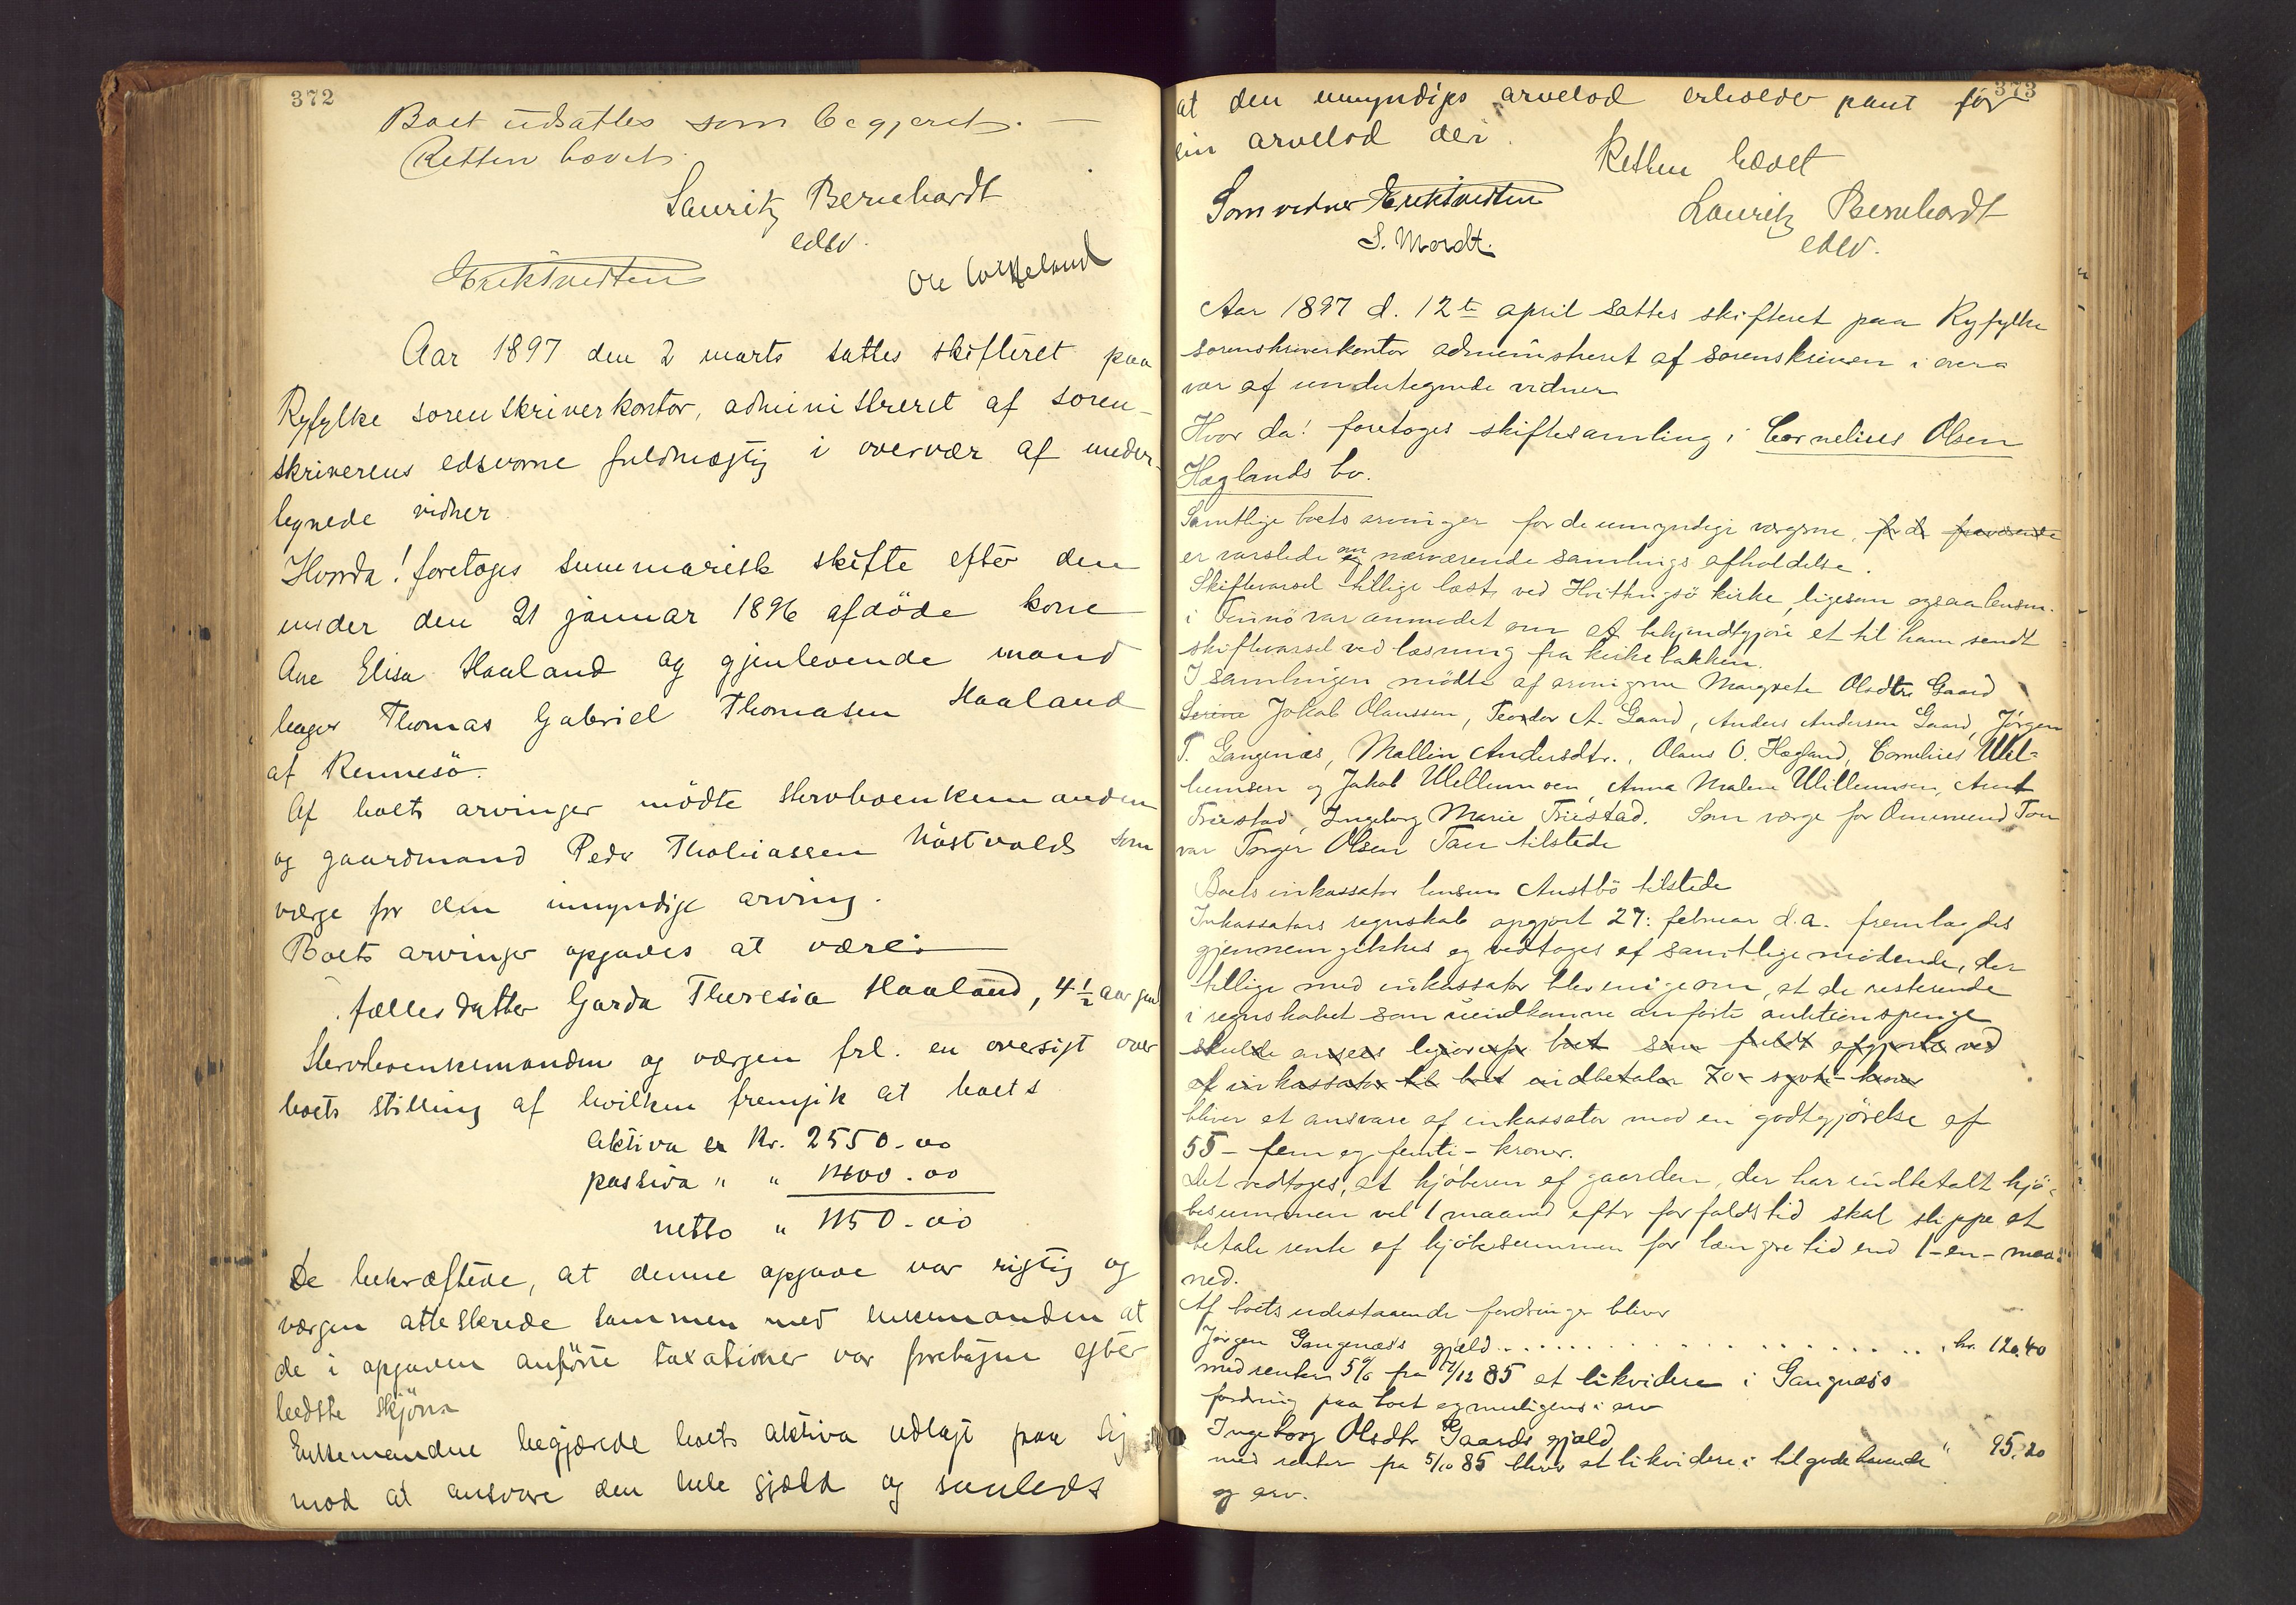 372
Boet udsattes som begjeret. —
Retten hævet
Lauritz Bernhardt
edsv.
Ole
Aar 1897 den 2 marts sattes skifteret paa
Ryfylke sorenskriverkontor, administreret af soren-
skriverens edsvorne fuldmægtig i overvær af under-
tegnede vidner
Hvorda! foretoges summarisk skifte efter den
under den 21 januar 1896 afdöde kone
Ane Elisa Haaland og gjenlevende mand
Thomas Gabriel Thomasen Haaland
af Rennesö.
Af boets arvinger mödte stervboenkemanden
og gaardmand Peder Thobiassen som
værge for den umyndige arving.
Boets arvinger opgaves at være:
fælles datter Garda Theresia Haaland, 4½ aar gml
Stervboenkemanden og værgen frl. en oversigt over
boets stilling af hvilken fremgik at boets
aktiva er Kr. 2550-00
passiva " " 1400.00
netto " 1150-00
De bekræftede, at denne opgave var rigtig og
værgen atte­sterede sammen med enkemanden at
de i opgaven anförte taxationer var foretagne efter
bedste skjön
Enkemanden begjærede boets aktiva udlagt paa sig
mod at ansvare den hele gjæld og saaledes
373
at den umyndiges arvelod erholder pant for
sin arvelod deri.
Retten hævet
Som vidner
S. Mordt.
Lauritz Bernhardt
edsv.
Aar 1897 d. 12te april sattes skifteret paa Ryfylke
sorenskriverkontor administreret af sorenskriveren i over-
vær af undertegnede vidner
Hvor da! foretoges skiftesamling i Cornelius Olsen
Haglands bo.
Samtlige boets arvinger for de umyndige værgerne, for de fraværende
er varslede om nærværende samlings afholdelse.
Skiftevarsel tillige læst ved Hvittingsö kirke, ligesom ogsaa lensm.
i var anmodet om at bekjendtgjöre et til ham sendt
skiftevarsel ved læsning fra kirkebakken.
I samlingen mödte af arvingerne Margrete Olsdtr Gaard
Jakob Olaussen, Teodor A. Gaard, Anders Andersen Gaard, Jørgen
T. Gangenæs, Mallin Andersdtr., Olaus O. Hagland, Cornelius Wil-
lumsen og Jakob Willumsen, Anna Malene Willumsen,
Ingeborg Marie Som værge for Ommund Tou
var Torger Olsen Tou tilstede
Boets inkassator lensm Austbö tilstede
Inkassators regnskab opgjort 27: februar d.a. fremlagdes
gjennemgikkes og vedtoges af samtlige mödende, der
tillige med inkassator blev enige om, at de resterende
i regnskabet som uindkomne anförte auktionspenge
skulde ansees ligeoverfor boet som fuldt opgjorte ved
af inkassator til boet indbetaler 70 - sytti - kroner
bliver at ansvare af inkassator mod en godtgjörelse af
55 - fem og femti - kroner.
Det vedtoges, at kjöberen af gaarden, der har indbetalt kjö-
besummen vel 1 maaned efter forfaldstid skal slippe at
betale rente af kjöbesummen for længre tid end 1 - en - maa-
ned.
Af boets udestaaende fordringer bliver
Jørgen Gangenæs's gjæld . . . . . . . . . . . kr. 120.40
med renter 5% fra 12/12 85 at likvidere i Gangnæs's
fordring paa boet og muligens i arv
Ingeborg Olsdtr Gaards gjæld
med renter fra 5/10 85 bliver at likvidere i tilgodehavende " 95.20
og arv.